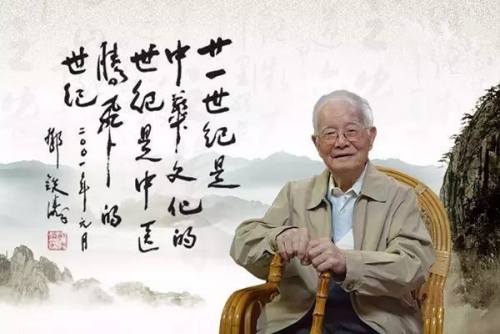 廿一世纪是
中華文化的
世纪是中医
腾飞的
世纪
二〇〇一年元月
鄧铁涛